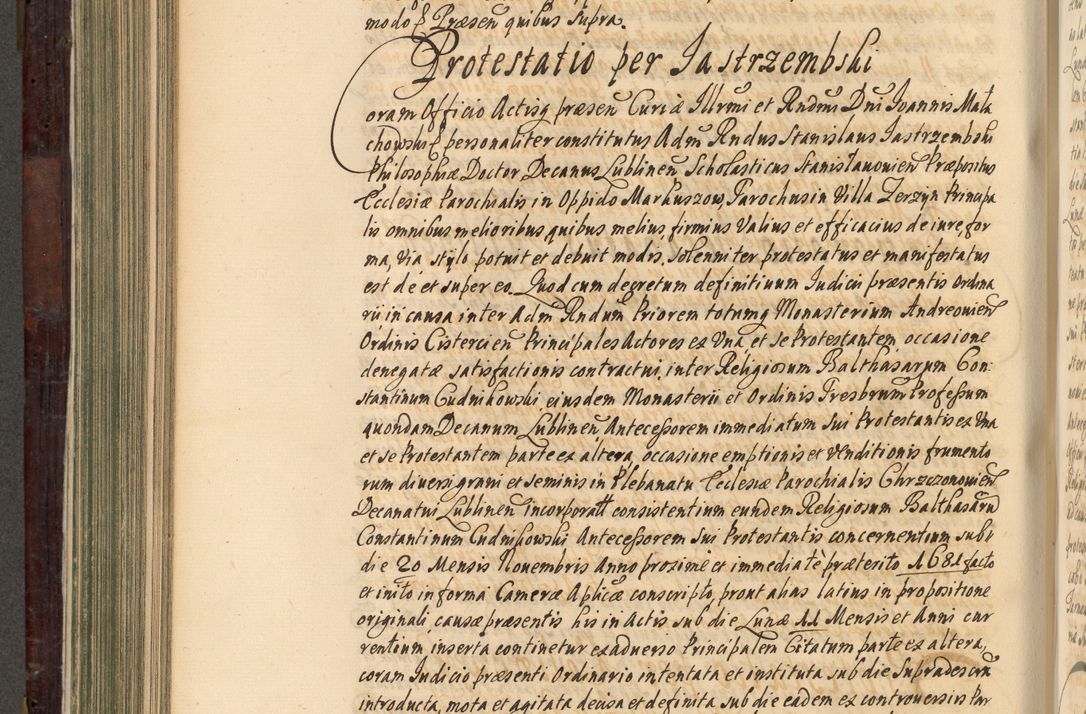 modo ꝑ Præsen̄ quibus supra.
Protestatio per Jastrzembski
Coram Officio Actisq̨ præsen̄ Curiæ Illrmi et Rndmi Dni Joannis Mała
chowski ꝑ personaliter constitutus Adm̄ Rndus Stanislaus Jastrzembski
Philosophiæ Doctor Decanus Lublinen̄ Scholasticus Stanisławovien̄ Præpositus
Ecclesiæ Parochialis in Oppido Markuszow, Parochus in Villa Zerzyn Principa
lis omnibus melioribus, quibus melius, firmius validius et efficacius de iure, for
ma, via stylo potuit et debuit modis, solenniter protestatus et manifestatus
est de et super eo. Quod cum decretum definitiuum Judicii præsentis ordina
rii in causa inter Adm̄ Rndum Priorem totumq̨ Monasterium Andreouien̄
Ordinis Cistercien̄ Principales Actores ex Vna, et se Protestantem occasione
denegatæ satisfactionis contractui, inter Religiosum Balthasarum Con:
stantinum Cudnikowski eiusdem Monasterii et Ordinis Presbrum Professum
quondam Decanum Lublinen̄ Antecessorem immediatum sui Protestantis ex Vna
et se Protestantem parte ex altera, occasione emptionis et venditionis frumento
rum diversi grani et seminis in Plebanatu Ecclesiæ Parochialis Chrzczonouien̄
Decanatui Lublinen̄ incorporatt consistentium eundem Religiosum Balthasarū
Constantinum Cudnikowski Antecessorem sui Protestantis concernentium sub
die 20 Mensis Nouembris Anno proxime et immediatè præterito 1681 facto
et inito in forma Cameræ Aplicæ conscripto, prout alias latius in propositione
originali, causæ præsentis his in Actis sub die Lunæ 11 Mensis et Anni cur
rentium inserta continetur ex adverso Principalem Citatum parte ex altera,
coram Judicio præsenti Ordinario intentata et instituta sub die supradescrīī
introducta, mota et agitata decisa et definita sub die eadem ex controversiis Par